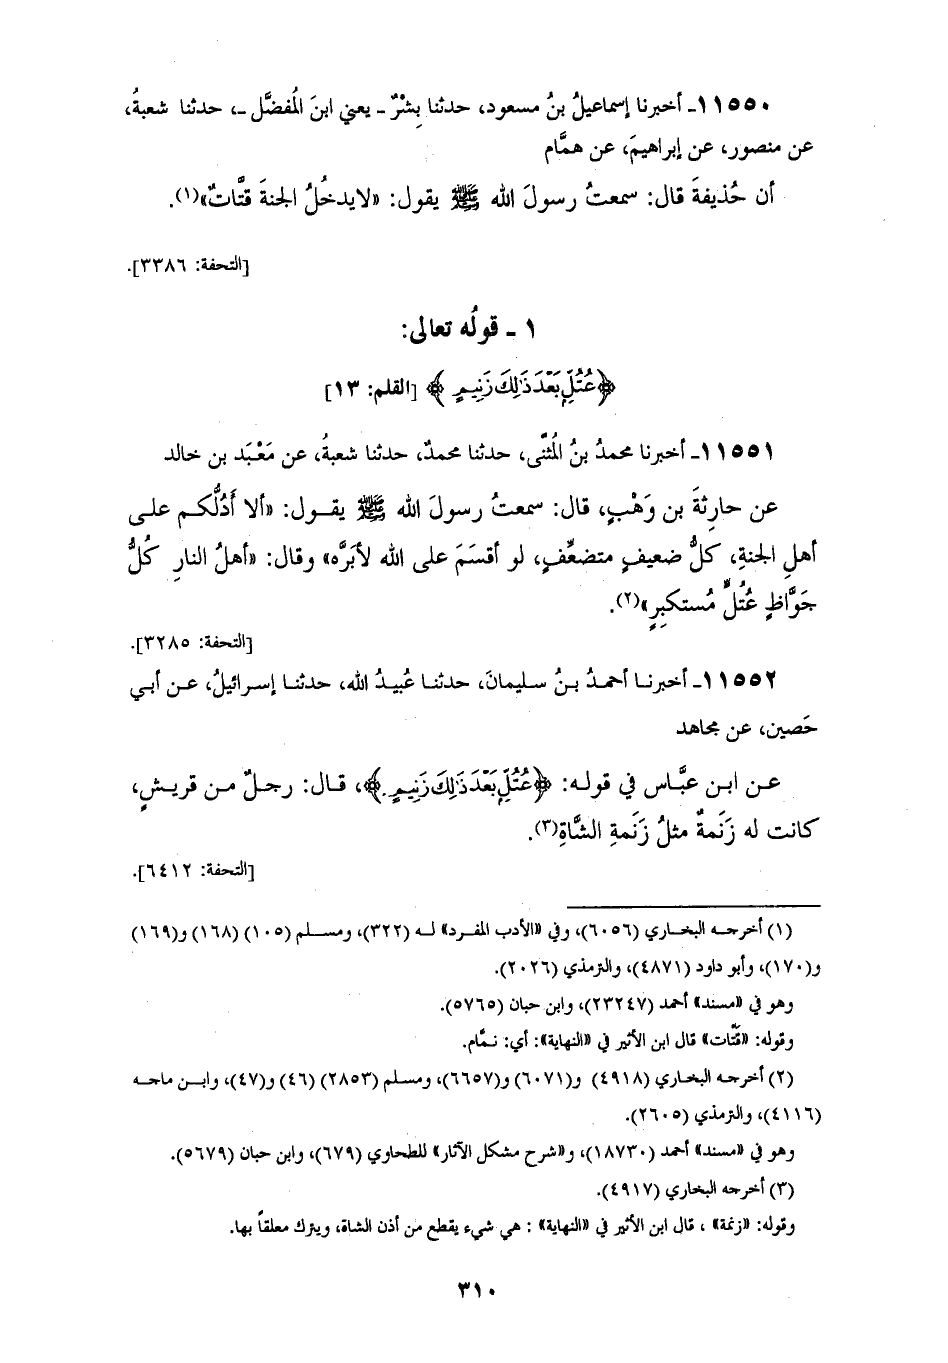 ١١٥٥٠ـ أخبرنا إسماعيلُ بنُ مسعود، حدثنا بِشْرٌ ـ يعني ابنَ المُفضَّل ـ، حدثنا شعبةُ،
عن منصور، عن إبراهيمَ، عن همَّام
أن حُذيفةَ قال: سمعتُ رسولَ الله ﷺ يقول: «لايدخُلُ الجنةَ قتَّاتٌ»(١).
[التحفة: ٣٣٨٦].
١ ـ قولُه تعالى:
﴿عُتُلٍّ بَعْدَ ذَٰلِكَ زَنِيمٍ﴾ [القلم: ١٣]
١١٥٥١ـ أخبرنا محمدُ بنُ المُثنَّى، حدثنا محمدٌ، حدثنا شعبةُ، عن مَعْبَد بن خالد
عن حارِثةَ بن وَهْبٍ، قال: سمعتُ رسولَ الله ﷺ يقول: «ألا أَدُلُّكم على
أهلِ الجنةِ، كلُّ ضعيفٍ متضعِّفٍ، لو أقسَمَ على الله لأبَرَّه» وقال: «أهلُ النارِ كُلُّ
جَوَّاظٍ عُتُلٍّ مُستكبِرٍ»(٢).
[التحفة: ٣٢٨٥].
١١٥٥٢ـ أخبرنا أحمدُ بنُ سليمانَ، حدثنا عُبيدُ الله، حدثنا إسرائيلُ، عن أبي
حَصين، عن مجاهد
عن ابن عبَّاس في قوله: ﴿عُتُلٍّ بَعْدَ ذَٰلِكَ زَنِيمٍ﴾، قال: رجلٌ من قريشٍ،
كانت له زَنَمةٌ مثلُ زَنَمةِ الشَّاةِ(٣).
[التحفة: ٦٤١٢].
(١) أخرجه البخاري (٦٠٥٦)، وفي «الأدب المفرد» له (٣٢٢)، ومسلم (١٠٥) (١٦٨) و(١٦٩)
و(١٧٠)، وأبو داود (٤٨٧١)، والترمذي (٢٠٢٦).
وهو في «مسند» أحمد (٢٣٢٤٧)، وابن حبان (٥٧٦٥).
وقوله: «قتَّات» قال ابن الأثير في «النهاية»: أي: نمَّام.
(٢) أخرجه البخاري (٤٩١٨) و(٦٠٧١) و(٦٦٥٧)، ومسلم (٢٨٥٣) (٤٦) و(٤٧)، وابن ماجه
(٤١١٦)، والترمذي (٢٦٠٥).
وهو في «مسند» أحمد (١٨٧٣٠)، و«شرح مشكل الآثار» للطحاوي (٦٧٩)، وابن حبان (٥٦٧٩).
(٣) أخرجه البخاري (٤٩١٧).
وقوله: «زنمة» ، قال ابن الأثير في «النهاية» : هي شيء يقطع من أذن الشاة، ويترك معلقاً بها.
٣١٠